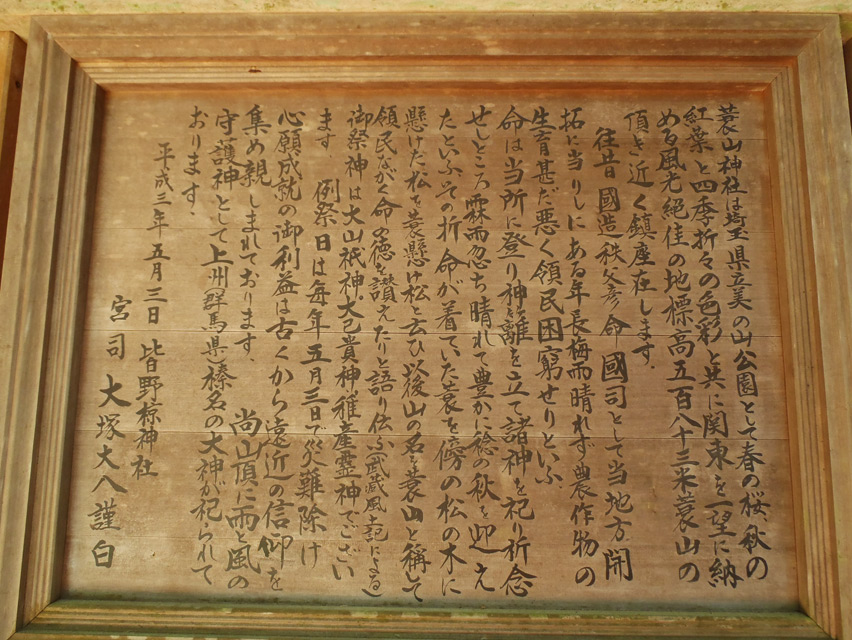 蓑山神社は埼玉県立美の山公園として春の桜、秋の
紅葉と四季折々の色彩と共に関東を一望に納
める風光絶佳の地標高五百八十三米蓑山の
頂き近く鎮座在します。
往昔國造秩父彦命國司として当地方開
拓に当りしにある年長梅雨晴れず農作物の
生育甚だ悪く領民困窮せりといふ
命は当所に登り神籬を立て諸神を祀り祈念
せしところ霖雨忽ち晴れて豊かに稔の秋を迎え
たといふその折命が着ていた蓑を傍の松の木に
懸けた松を蓑懸け松と云ひ以後山の名を蓑山と稱して
領民ながく命の徳を讃えたりと語り伝ふ(武蔵風土記による)
御祭神は大山祇神大己貴神稚産霊神でござい
ます。例祭日は毎年五月三日で災難除け
心願成就の御利益は古くから遠近の信仰を
集め親しまれております。尚山頂に雨と風の
守護神として上州群馬県榛名の大神が祀られて
おります。
平成三年五月三日 皆野椋神社
宮司 大塚大八謹白